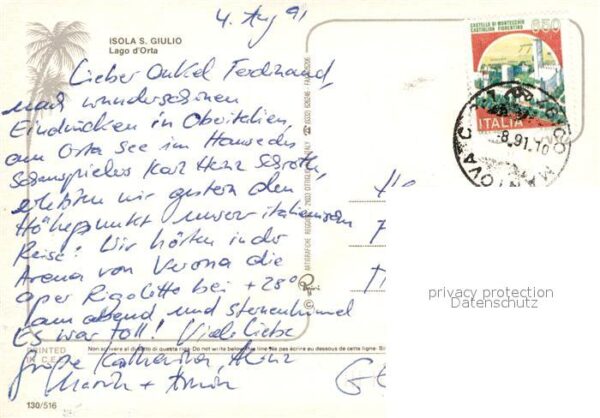 4. Aug 91
ISOLA S. GIULIO
Lago d'Orta
Lieber Onkel Ferdinand,
nach wunderschönen
Eindrücken in Obvitalien,
am Orta See im Hause des
Schauspielers Karl Heinz Schroth,
erlebten wir gestern den
Höhepunkt unserer italienischen
Reise! Wir hörten in der
Arena von Verona die
Oper Rigoletto bei +28°
am abend und sternenhimmel
Es war toll! Viele liebe
grüße Katharina, Heinz
+
PRINTED
IN C.E.
Non scrivere al disotto di questa riga. Do not write below this line. Ne pas écrire au dessous de cette ligne.
130/516
CASTELLO DI MONTECCHIO
CASTIGLION FIORENTINO
650
ITALIA
8.91.10
MANTOVA
privacy protection
Datenschutz